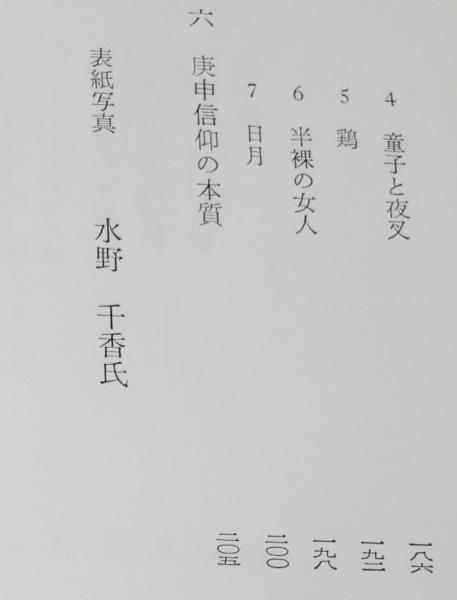 4 童子と夜叉 一八六
5 鶏 一九二
6 半裸の女人 一九八
7 日月 二〇〇
六 庚申信仰の本質 二〇五
表紙写真 水野 千香氏